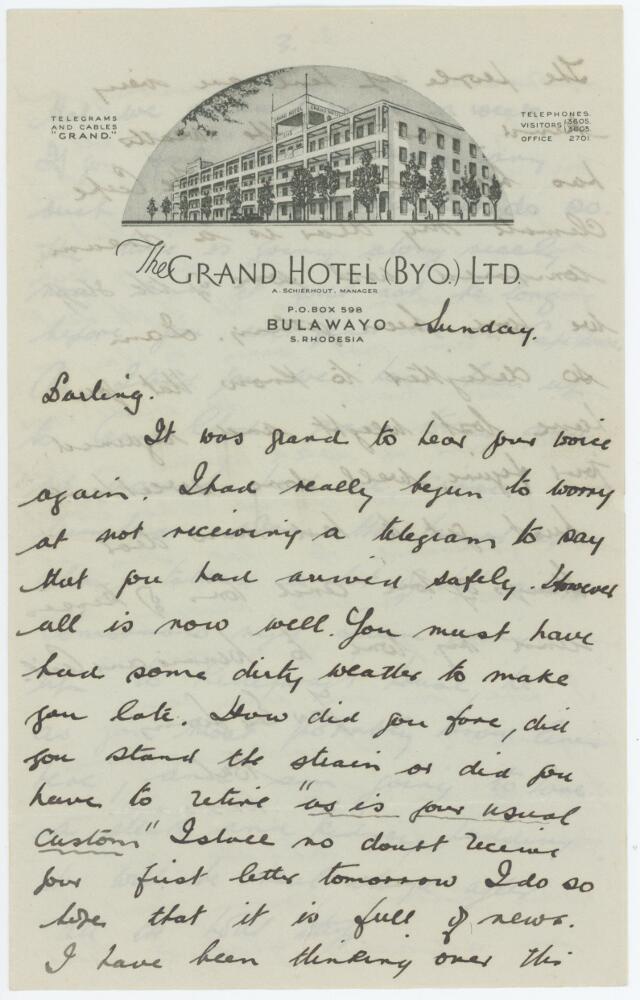 TELEGRAMS
AND CABLES
"GRAND."
GRAND HOTEL
GRAND HOTEL
TELEPHONES.
VISITORS {3605.
3603.
OFFICE 2701.
The GRAND HOTEL (BYO.) LTD.
A. SCHIERHOUT. MANAGER
P.O. BOX 598
BULAWAYO
S. RHODESIA
Sunday.
Darling.
It was grand to hear your voice
again. I had really begun to worry
at not receiving a telegram to say
that you had arrived safely. However
all is now well. You must have
had some dirty weather to make
you late. How did you fare, did
you stand the strain or did you
have to retire "as is your usual
custom" I shall no doubt receive
your first letter tomorrow I do so
hope that it is full of news.
I have been thinking over this